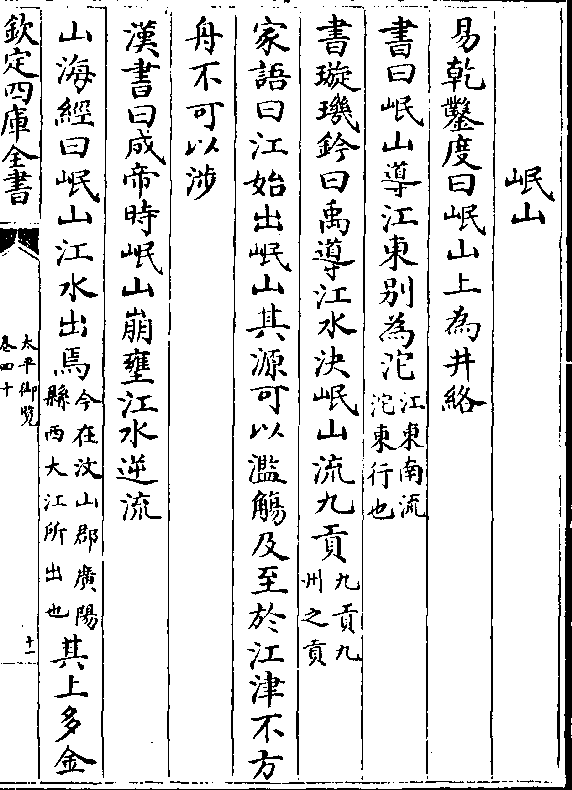 岷山
易乾鑿度曰岷山上為井絡
書曰岷山導江東别為沱江東南流沱東行也
書璇璣鈐曰禹導江水決岷山流九貢九貢九州之貢
家語曰江始出岷山其源可以濫觴及至於江津不方
舟不可以涉
漢書曰成帝時岷山崩壅江水逆流
山海經曰岷山江水出焉今在汶山郡廣陽縣西大江所出也其上多金
欽定四庫全書
太平御覽
卷四十
十一